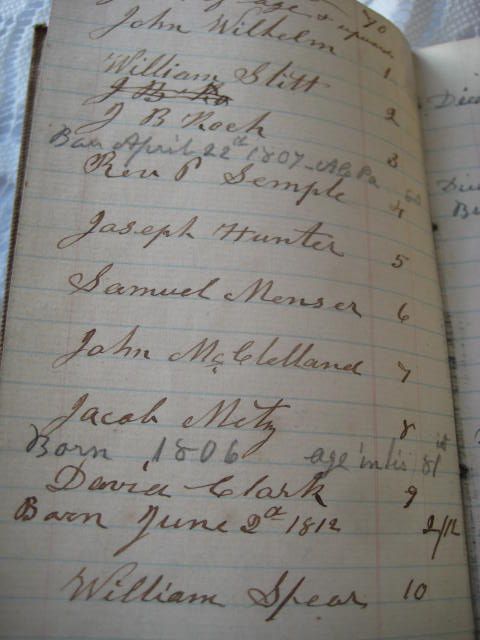 of age & upwards 70
John Wilhelm 1
William Slitt 2
J B Ro
J B Rock 3
Ban April 22d 1807 - Al Co Pa
Rev P Semple 4
Joseph Hunter 5
Samuel Menser 6
John McClelland 7
Jacob Metz 8
Born 1806 age in his 81st
David Clark 9
Born June 2d 1812 2/12
William Spear 10
Die
Die
B